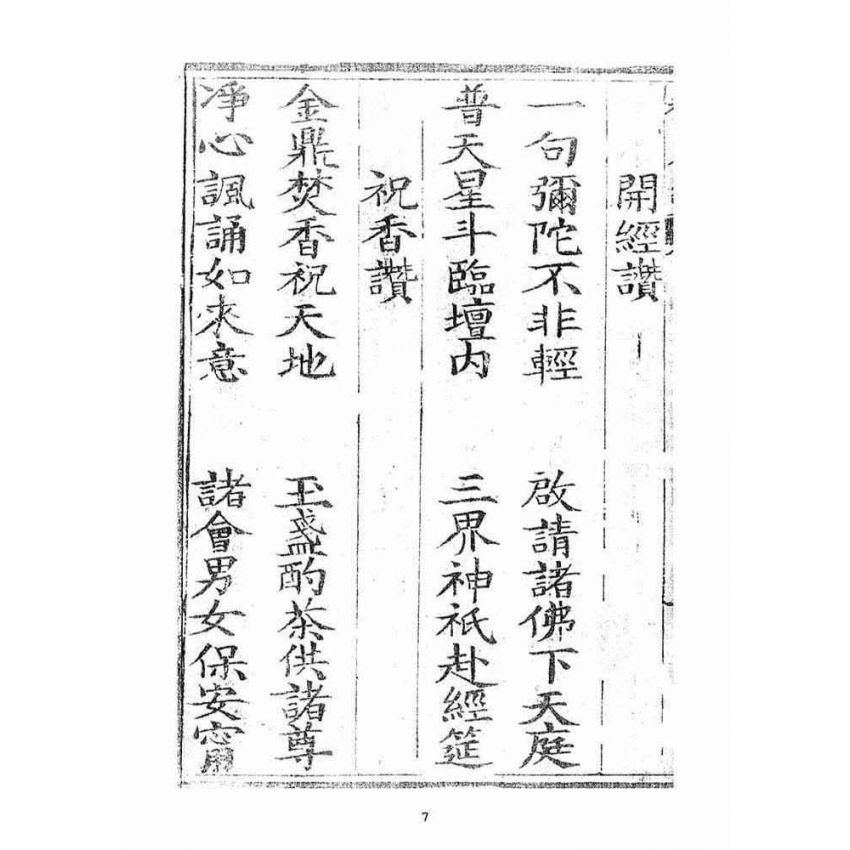 開經讚
一句彌陀不非輕 啟請諸佛下天庭
普天星斗臨壇内 三界神祇赴經筵
祝香讚
金鼎焚香祝天地 玉盞酌茶供諸尊
淨心諷誦如來意 諸會男女保安甯
7